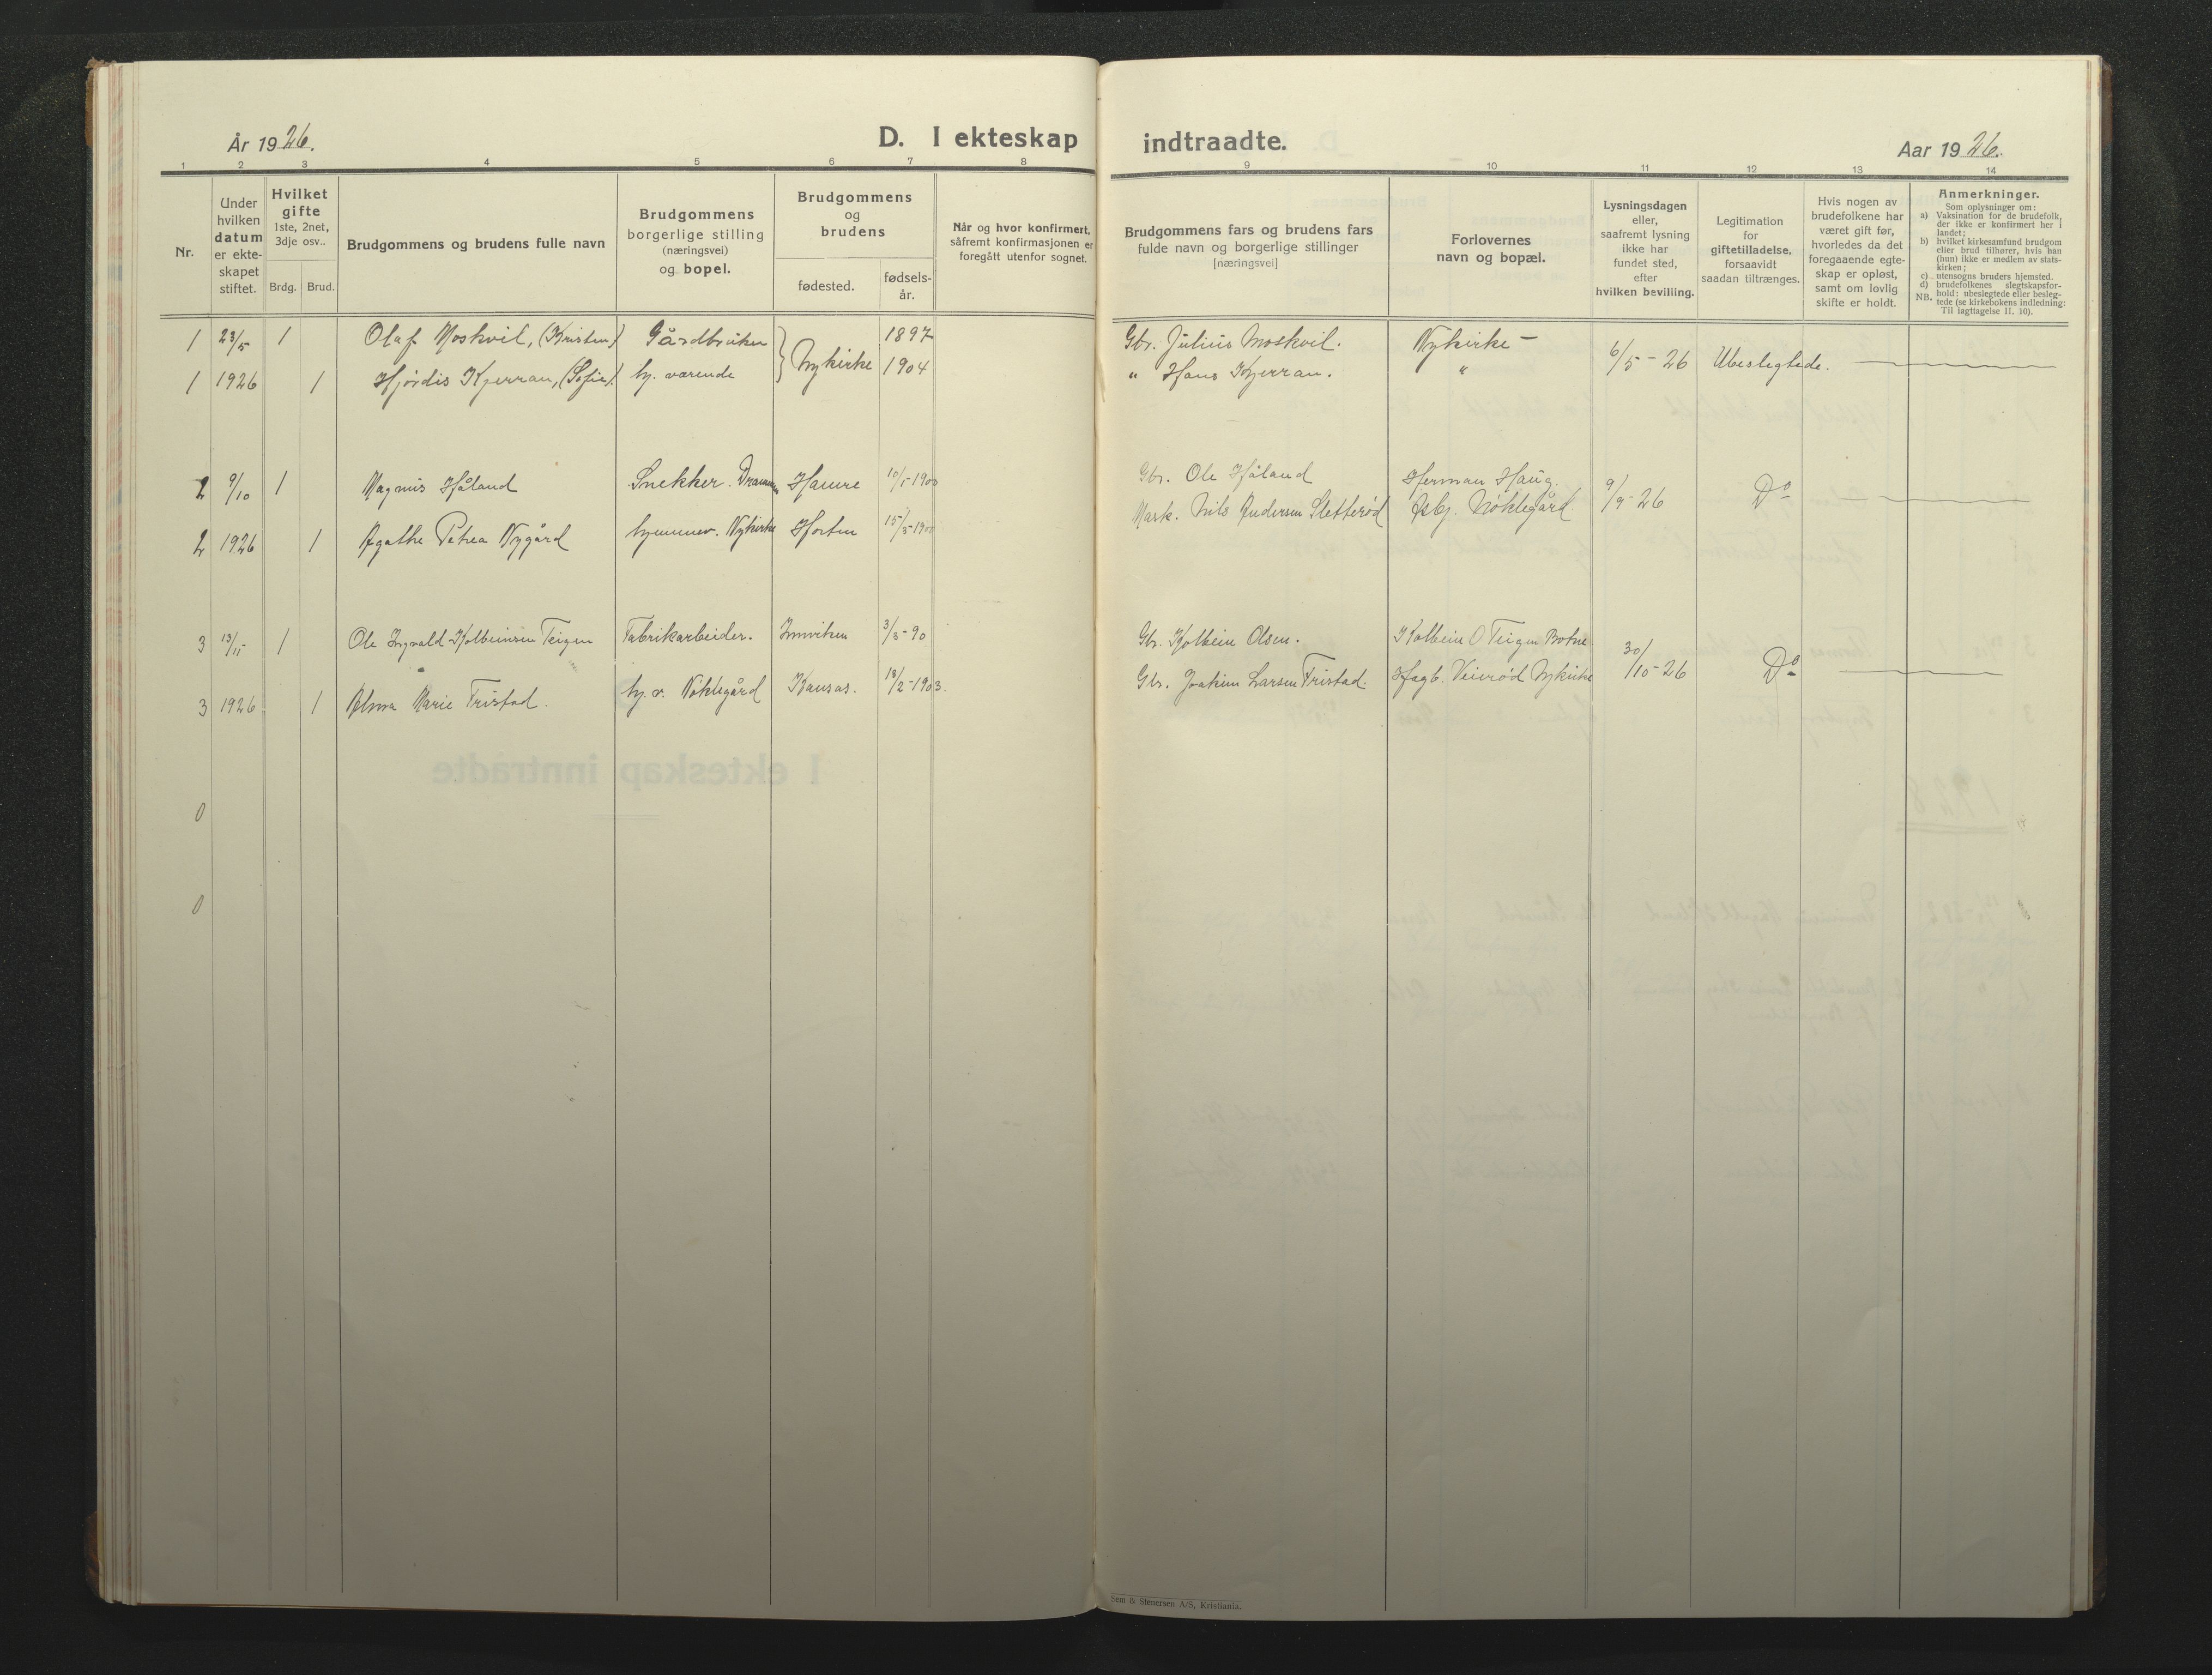 År 1926.
D. I ekteskap
indtraadte.
Aar 1926.
1 2 3 4 5 6 7 8 9 10 11 12 13 14
Nr.
Under
hvilken
datum
er ekte-
skapet
stiftet.
Hvilket
gifte
1ste, 2net,
3dje osv..
Brdg. Brud.
Brudgommens og brudens fulle navn
Brudgommens
borgerlige stilling
(næringsvei)
og bopel.
Brudgommens
og
brudens
fødested.
fødsels-
år.
Når og hvor konfirmert,
såfremt konfirmasjonen er
foregått utenfor sognet.
Brudgommens fars og brudens fars
fulde navn og borgerlige stillinger
[næringsvei]
Forlovernes
navn og bopæl.
Lysningsdagen
eller,
saafremt lysning
ikke har
fundet sted,
efter
hvilken bevilling.
Legitimation
for
giftetilladelse,
forsaavidt
saadan tiltrænges.
Hvis nogen av
brudefolkene har
været gift før,
hvorledes da det
foregaaende egte-
skap er opløst,
samt om lovlig
skifte er holdt.
Anmerkninger.
Som oplysninger om:
a) Vaksination for de brudefolk,
der ikke er konfirmert her i
landet;
b) hvilket kirkesamfund brudgom
eller brud tilhører, hvis han
(hun) ikke er medlem av stats-
kirken;
c) utensogns bruders hjemsted.
d) brudefolkenes slegtskapsfor-
hold: ubeslegtede eller besleg-
NB. tede (se kirkebokens indledning:
Til iagttagelse II. 10).
1 23/5 1 Olaf Moskvil, (Kristen) Gårdbruker 1897 Gbr. Julius Moskvil. Nykirke —
} Nykirke 6/5 - 26 Ubeslegtede.
1 1926 1 Hjördis Kjerran, (Sofie). hj. værende 1904 " Hans Kjerran. "
2 9/10 1 Magnus Håland Snekker. Drammen 10/5-1900 Gbr. Ole Håland Herman Haug. 9/9-26 Do
2 1926 1 Agathe Petrea Nygård hjemmev. Nykirke Horten 15/5-1900 Mark. Nils Andersen Sletterød Asbj. Nöklegård
3 13/11 1 Ole Ingvald Kolbeinsen Teigen Fabrikarbeider. Innviken 3/3-90 Gbr. Kolbein Olsen. Kolbein O Teigen Botne 30/10-26 Do
3 1926 1 Alma Marie Tristad. hj. v. Nöklegård Kansas. 18/2-1903. Gbr. Joakim Larsen Tristad. Hagb. Veierød Nykirke
0
0
Sem & Stenersen A/S, Kristiania.